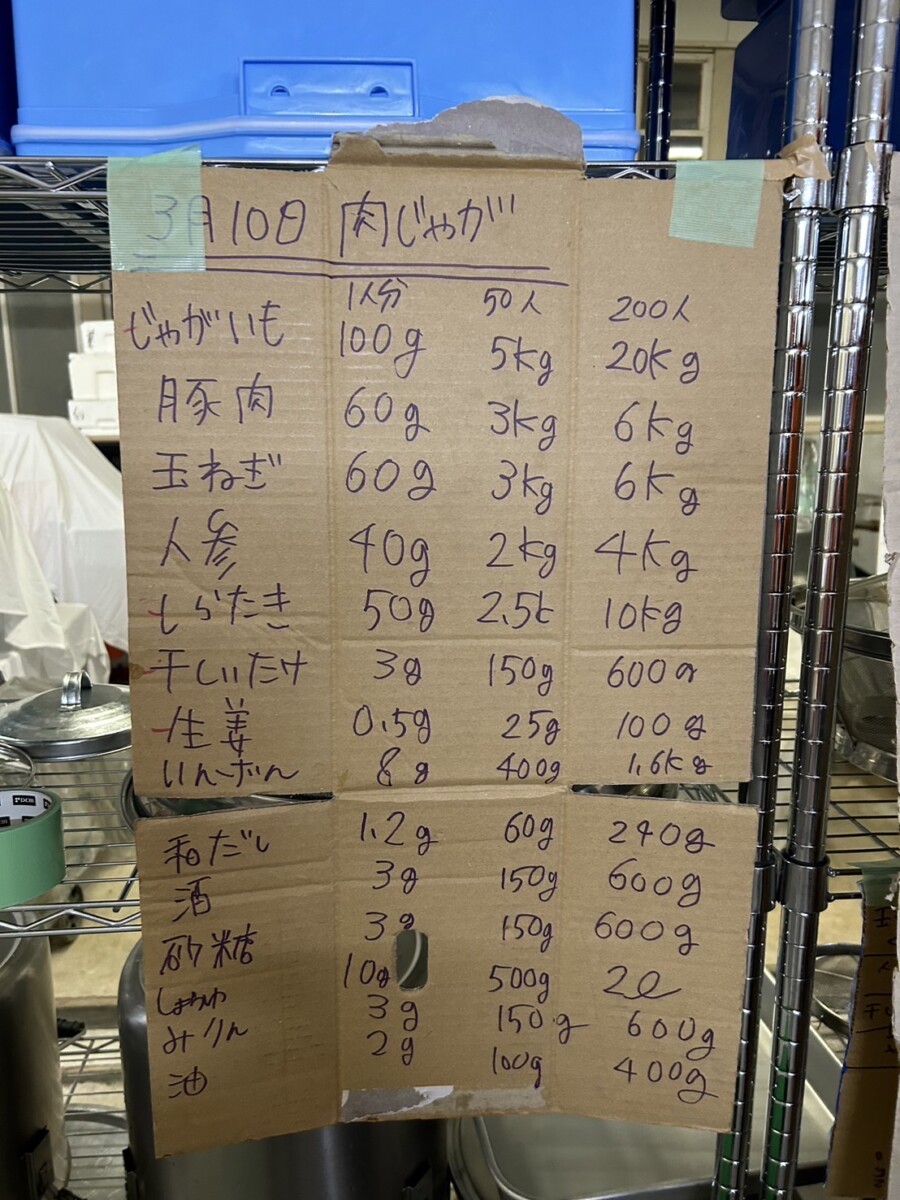 3月10日 肉じゃが
1人分 50人 200人
じゃがいも 100g 5kg 20kg
豚肉 60g 3kg 6kg
玉ねぎ 60g 3kg 6kg
人参 40g 2kg 4kg
しらたき 50g 2.5k 10kg
干しいたけ 3g 150g 600g
生姜 0.5g 25g 100g
いんげん 8g 400g 1.6kg
和だし 1.2g 60g 240g
酒 3g 150g 600g
砂糖 3g 150g 600g
しょうゆ 10g 500g 2ℓ
みりん 3g 150g 600g
油 2g 100g 400g